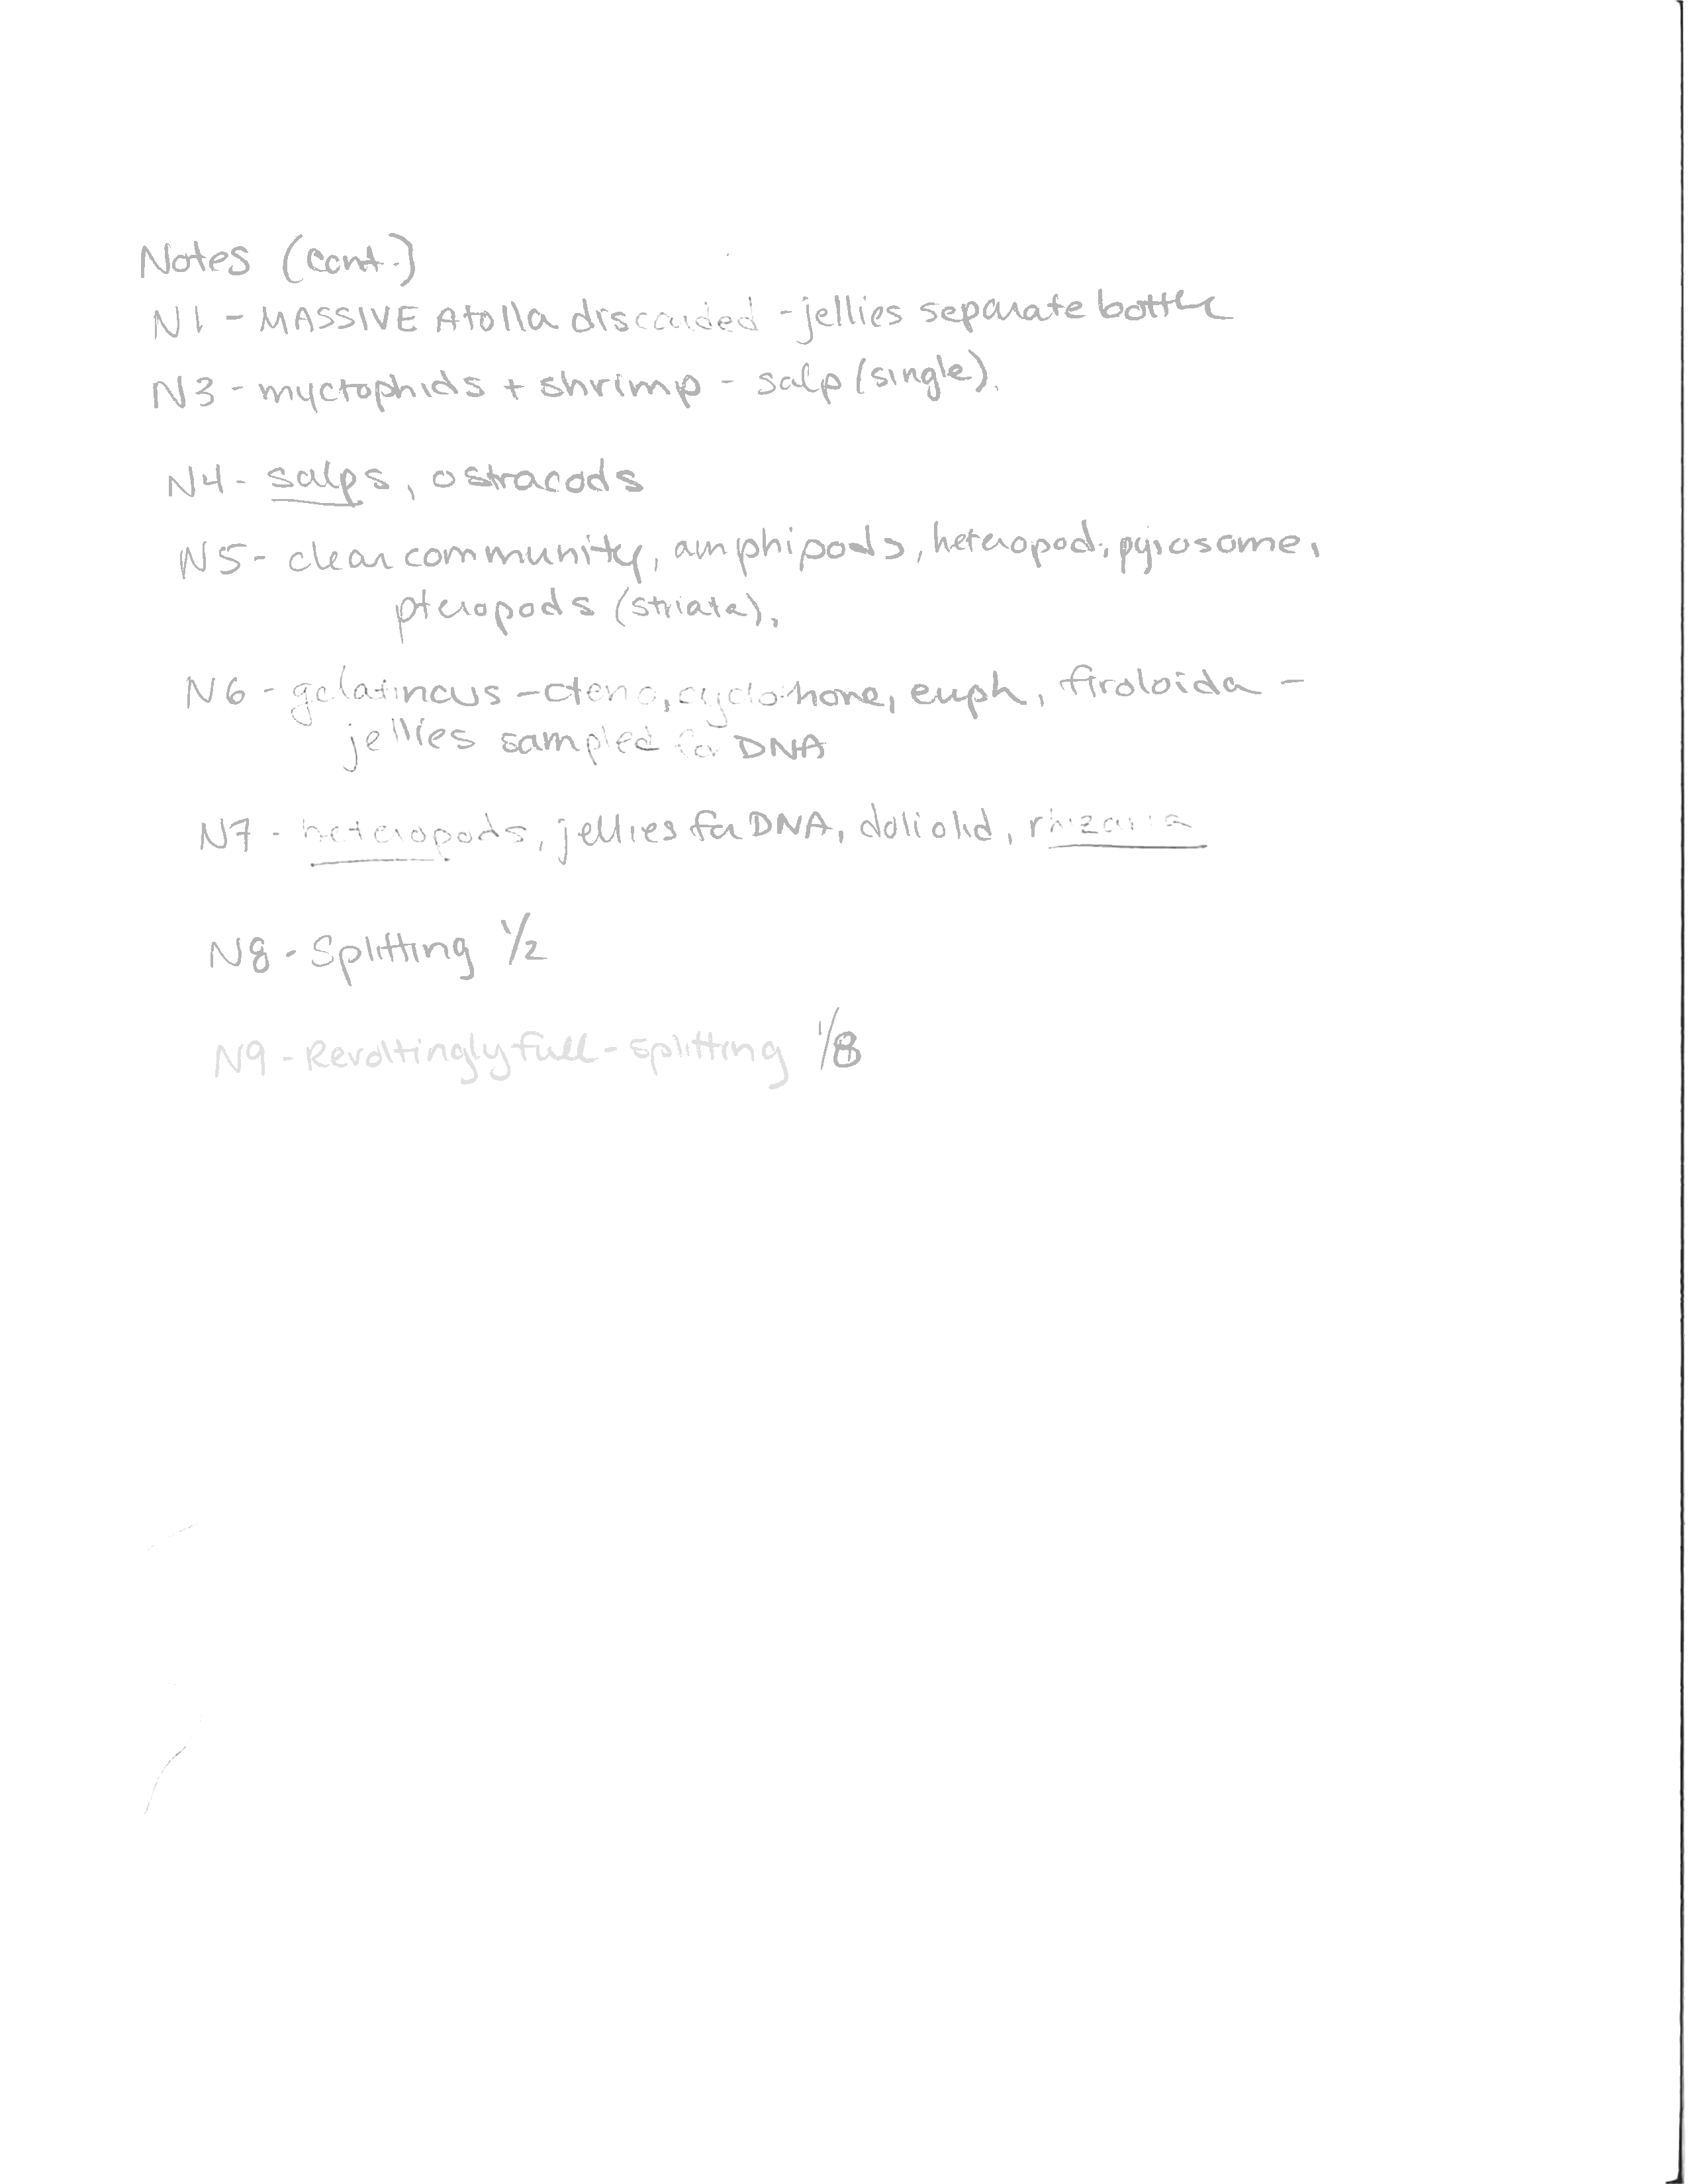 Notes (cont.)
N1 - MASSIVE Atolla discarded - jellies separate bottle
N3 - myctophids + shrimp - salp (single).
N4 - salps, ostracods
N5 - clear community, amphipods, heteropod, pyrosome,
pteropods (striata).
N6 - gelatinous - cteno, cyclothone, euph, firoloida -
jellies sampled for DNA
N7 - heteropods, jellies for DNA, doliolid, rhizaria
N8 - Splitting 1/2
N9 - Revoltingly full - splitting 1/8